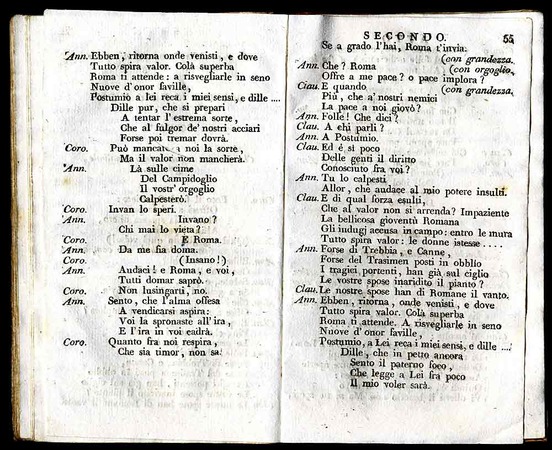 Ann. Ebben, ritorna onde venisti, e dove
Tutto spira valor. Colà superba
Roma ti attende: a risvegliarle in seno
Nuove d'onor faville,
Postumio a lei reca i miei sensi, e dille ....
Dille pur, che si prepari
A tentar l'estrema sorte,
Che al fulgor de' nostri acciari
Forse poi tremar dovrà.
Coro. Può mancare a noi la sorte,
Ma il valor non mancherà.
Ann. Là sulle cime
Del Campidoglio
Il vostr' orgoglio
Calpesterò.
Coro. Invan lo speri.
Ann. Invano?
Chi mai lo vieta?
Coro. E Roma.
Ann. Da me fia doma.
Coro. (Insano!)
Ann. Audaci! e Roma, e voi,
Tutti domar saprò.
Coro. Non lusingarti, no.
Ann. Sento, che l'alma offesa
A vendicarsi aspira:
Voi la spronaste all'ira,
E l'ira in voi cadrà.
Coro. Quanto fra noi respira,
Che sia timor, non sa.
SECONDO. 55
Se a grado l'hai, Roma t'invia.
(con grandezza.
Ann. Che? Roma (con orgoglio,
Offre a me pace? o pace implora?
Clau. E quando (con grandezza,
Più, che a' nostri nemici
La pace a noi giovò?
Ann. Folle! Che dici?
Clau. A chi parli?
Ann. A Postumio.
Clau. Ed è sì poco
Delle genti il diritto
Conosciuto fra voi?
Ann. Tu lo calpesti
Allor, che audace al mio potere insulti.
Clau. E di qual forza esulti,
Che al valor non si arrenda? Impaziente
La bellicosa gioventù Romana
Gli indugj accusa in campo: entro le mura
Tutto spira valor: le donne istesse ....
Ann. Forse di Trebbia, e Canne,
Forse del Trasimen posti in obblio
I tragici portenti, han già sul ciglio
Le vostre spose inaridito il pianto?
Clau. Le nostre spose han di Romane il vanto.
Ann. Ebben, ritorna, onde venisti, e dove
Tutto spira valor. Colà superba
Roma ti attende. A risvegliarle in seno
Nuove d'onor faville,
Postumio, a Lei reca i miei sensi, e dille ....
Dille, che in petto ancora
Sento il paterno foco,
Che legge a Lei fra poco
Il mio voler sarà.